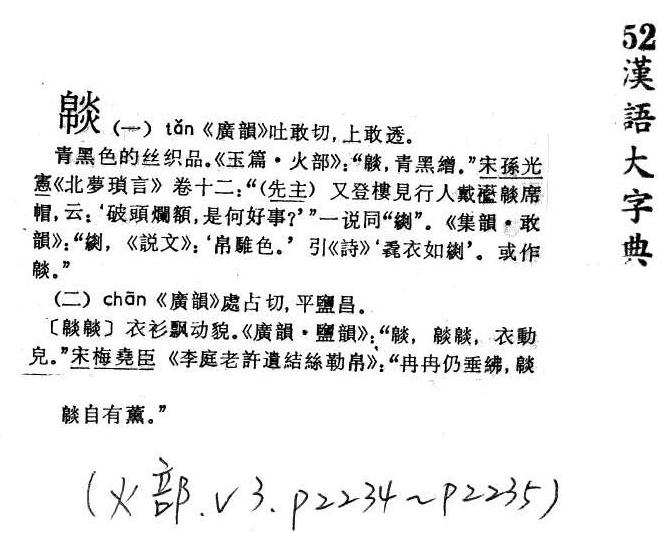 52
漢語大字典
㷋 (一) tǎn《廣韻》吐敢切,上敢透。
青黑色的丝织品。《玉篇·火部》:“㷋,青黑繒。”宋孫光
憲《北夢瑣言》卷十二:“(先主)又登樓見行人戴㷋席
帽,云:‘破頭爛額,是何好事?’”一说同“”。《集韻·敢
韻》:“,《説文》:‘帛騅色。’引《詩》‘毳衣如’。或作
㷋。”
(二) chān《廣韻》處占切,平鹽昌。
〔㷋㷋〕衣衫飘动貌。《廣韻·鹽韻》:“㷋,㷋㷋,衣動
皃。”宋梅堯臣《李庭老許遺結絲勒帛》:“冉冉仍垂紼,㷋
㷋自有薰。”
(火部.v3.p2234~p2235)